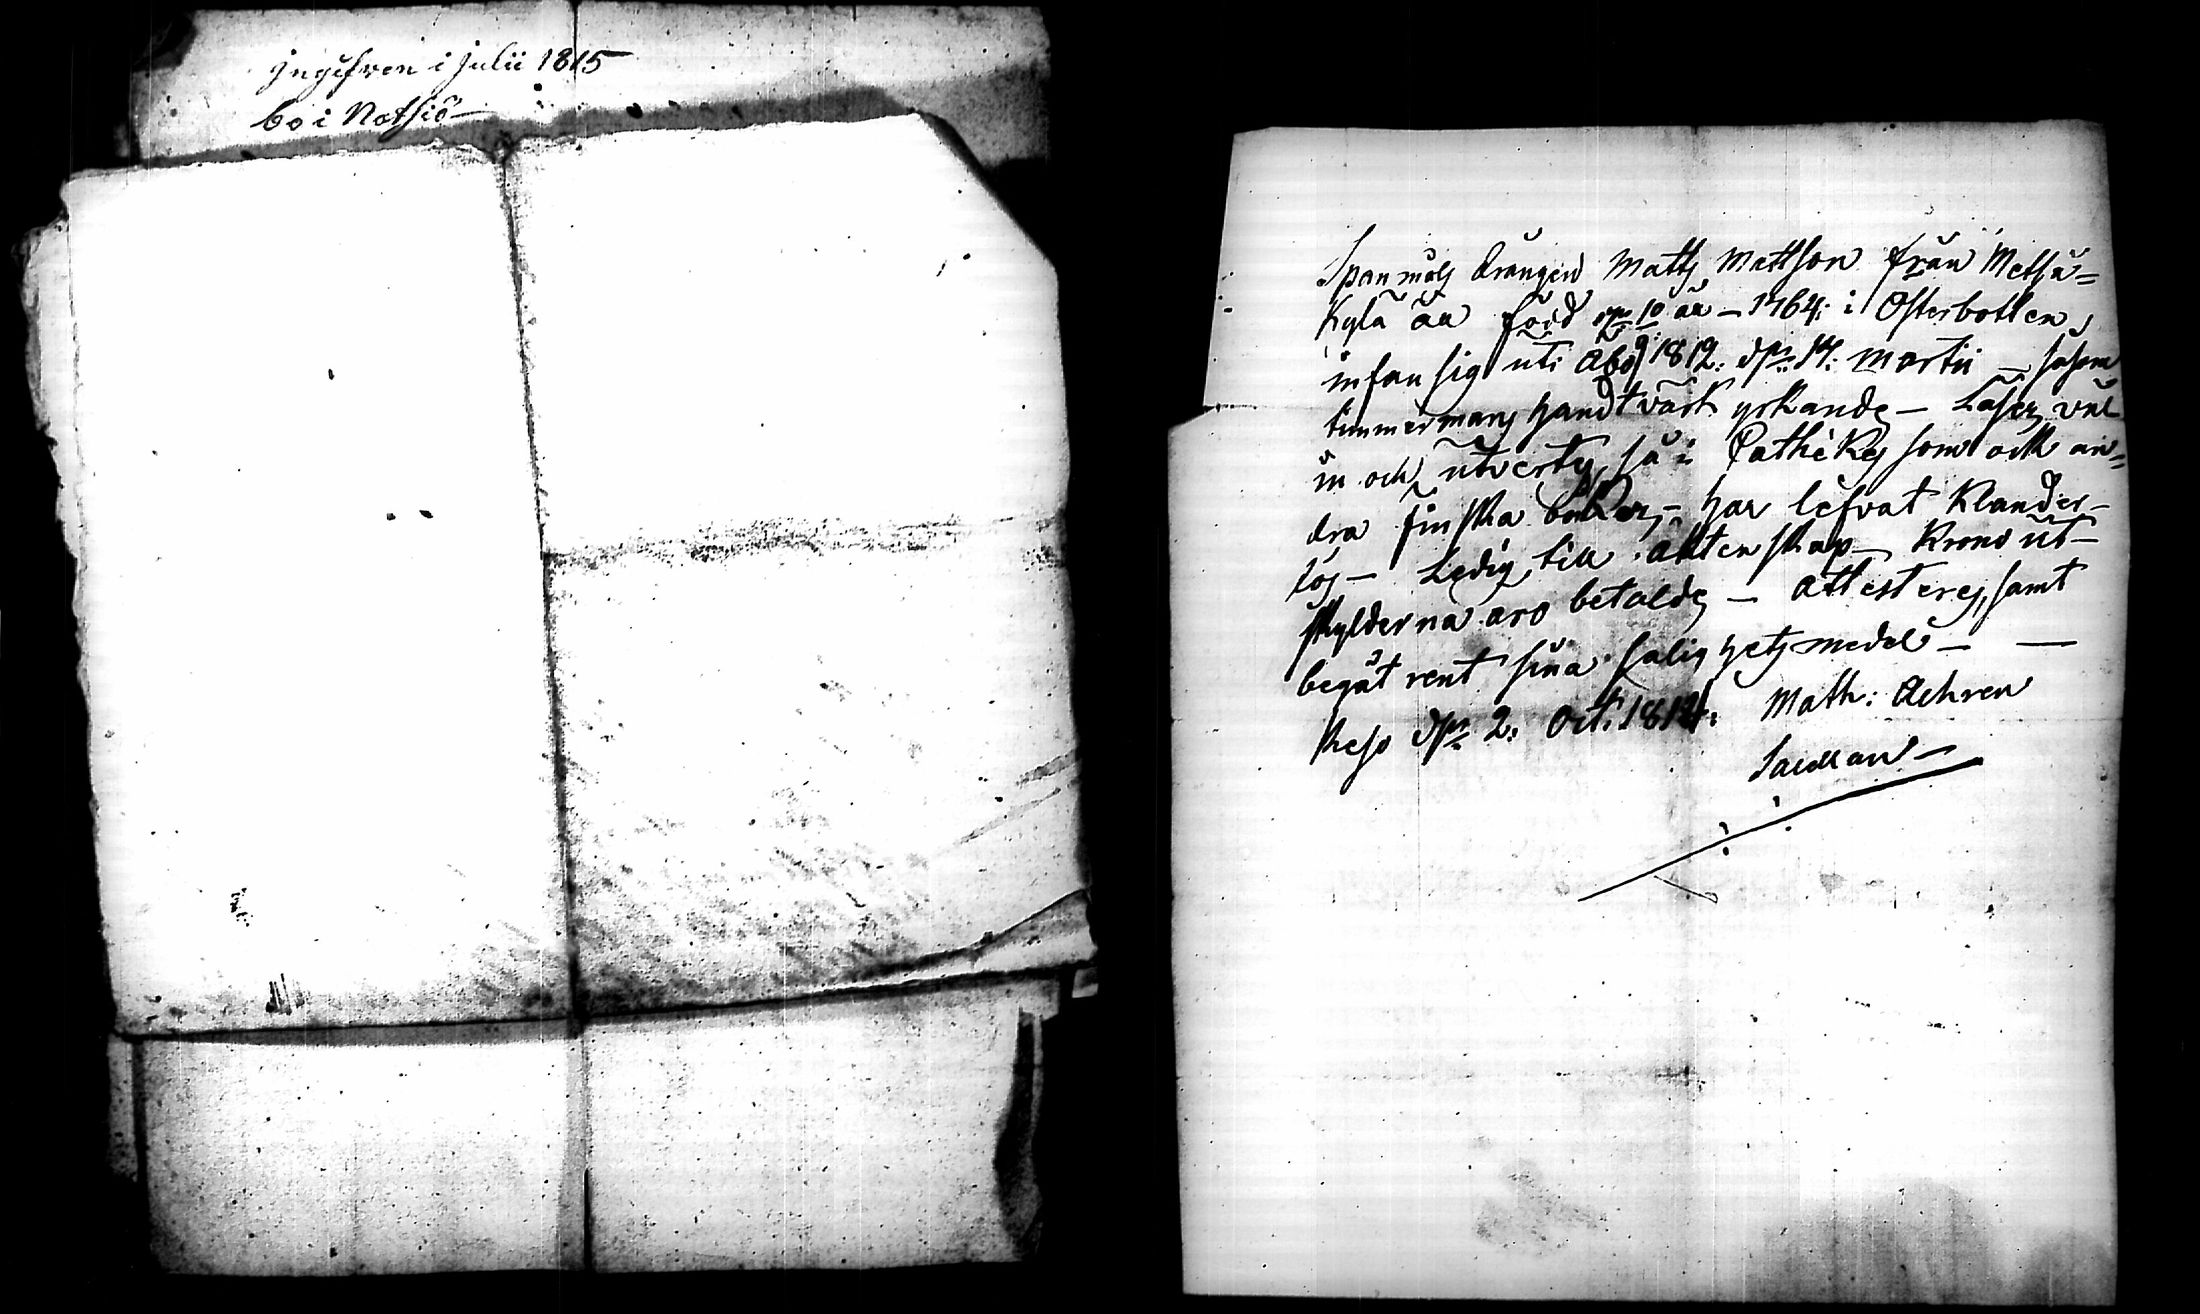 ingifven i Julii 1815
bo i Natsiö
Spanmåls Drängen Matts Mattson från Metsä=
Kylä är född 10 år 1764: i Österbotten,
infan sig uti Åbo 1812. d: 14: Martii — såsom
timmermans handtvärk yrkande — Läser väl
in och utvertes så i Cathekes som ock an=
dra finska böker, — har lefvat Klander-
lös — Ledig till äktenskap — Krono ut-
skylderna äro betalde — attesteres, samt
begåt rent sina salighets medel — —
Reso d: 2: Oct: 1814: Math: Achren